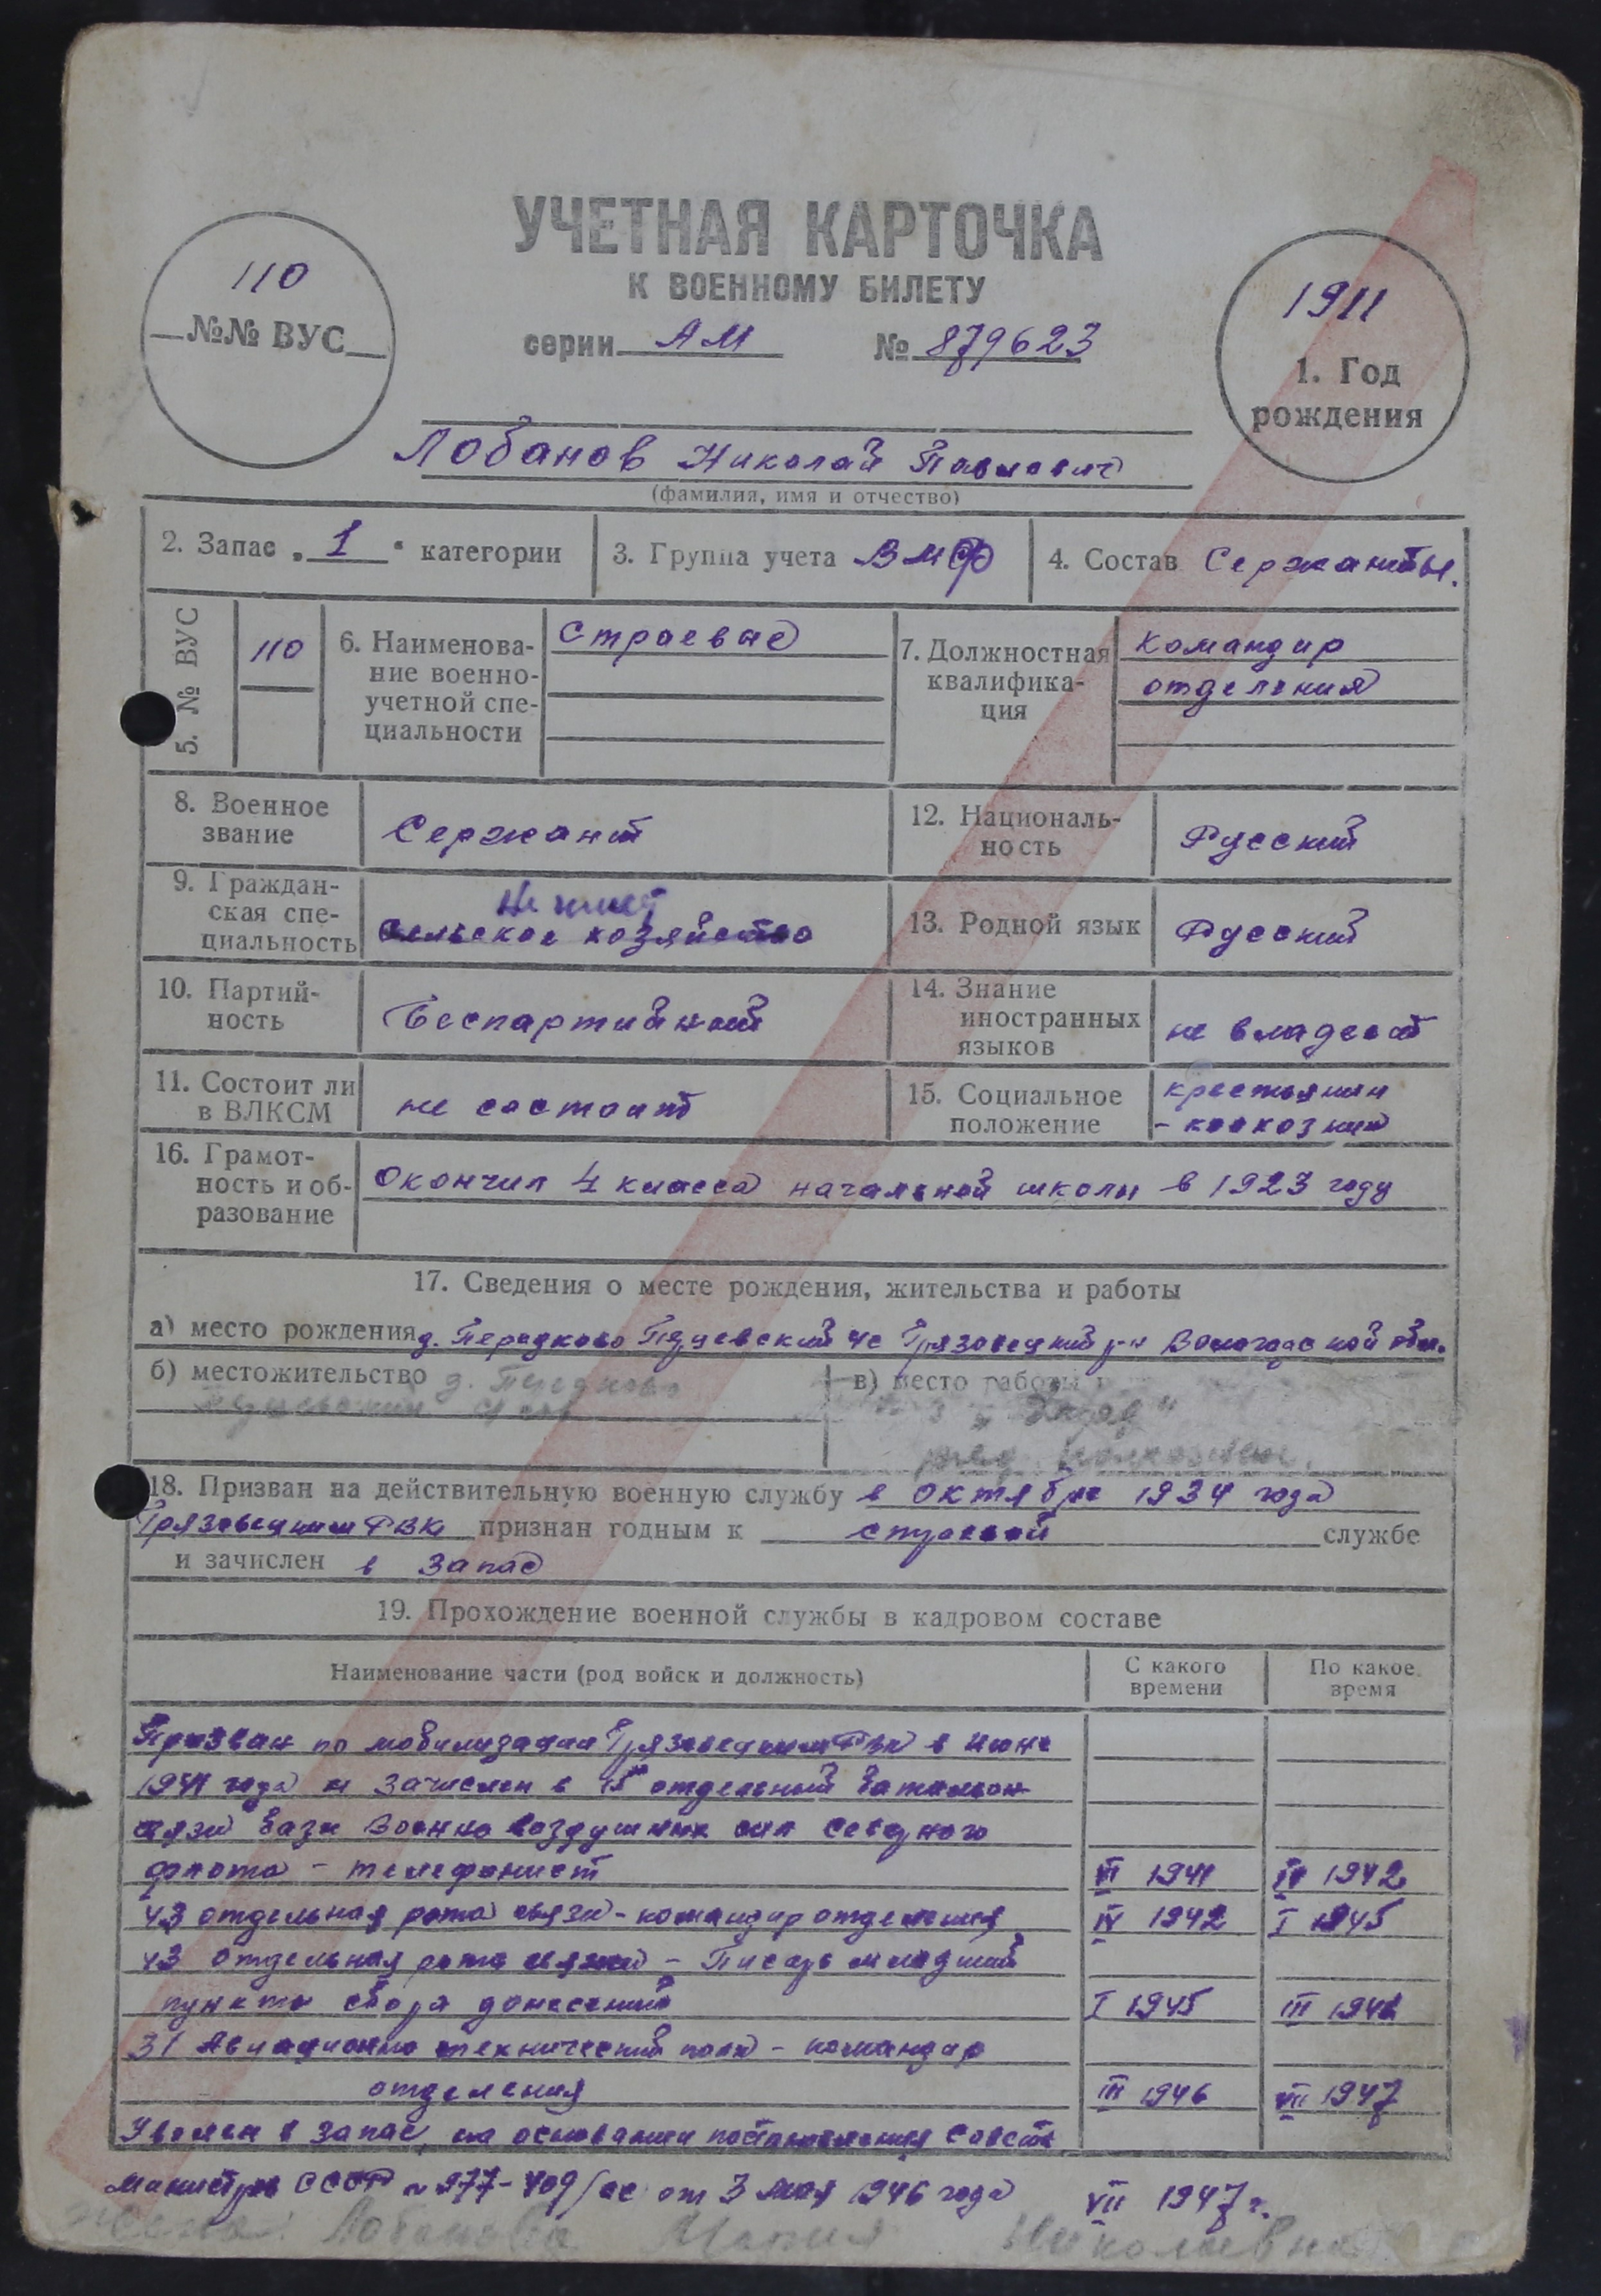 УЧЕТНАЯ КАРТОЧКА
К ВОЕННОМУ БИЛЕТУ
серии АМ № 879623
110
№№ ВУС
1911
1. Год
рождения
Лобанов Николай Павлович
(фамилия, имя и отчество)
2. Запас „1“ категории
3. Группа учета ВМФ
4. Состав Сержанты.
5. № ВУС
110
6. Наименова-
ние военно-
учетной спе-
циальности
Строевые
7. Должностная
квалифика-
ция
командир
отделения
8. Военное
звание
Сержант
12. Националь-
ность
Русский
9. Граждан-
ская спе-
циальность
Не имеет
сельское хозяйство
13. Родной язык
Русский
10. Партий-
ность
Беспартийный
14. Знание
иностранных
языков
не владеет
11. Состоит ли
в ВЛКСМ
не состоит
15. Социальное
положение
крестьянин
- колхозник
16. Грамот-
ность и об-
разование
Окончил 4 класса начальной школы в 1923 году
17. Сведения о месте рождения, жительства и работы
а) место рождения д. Передково с/с Грязовецкий р-н Вологодской обл.
б) местожительство д. Передково
в) место работы
18. Призван на действительную военную службу в октябре 1934 года
Грязовецким РВК признан годным к строевой службе
и зачислен в запас
19. Прохождение военной службы в кадровом составе
Наименование части (род войск и должность)
С какого
времени
По какое
время
Призван по мобилизации Грязовецким РВК в июне
1941 года и зачислен в отдельный батальон
связи базы Военно воздушных сил Северного
флота - телефонист VI 1941 IV 1942
43 отдельная рота связи - командир отделения IV 1942 I 1945
43 отдельная рота связи - Писарь младший
пункта сбора донесений I 1945 III 1946
31 Авиационно технический полк - командир
отделения III 1946 VII 1947
Уволен в запас на основании постановления Совета
Министров СССР № 977-409/сс от 3 мая 1946 года VII 1947 г.
жена: Лобанова Мария Николаевна